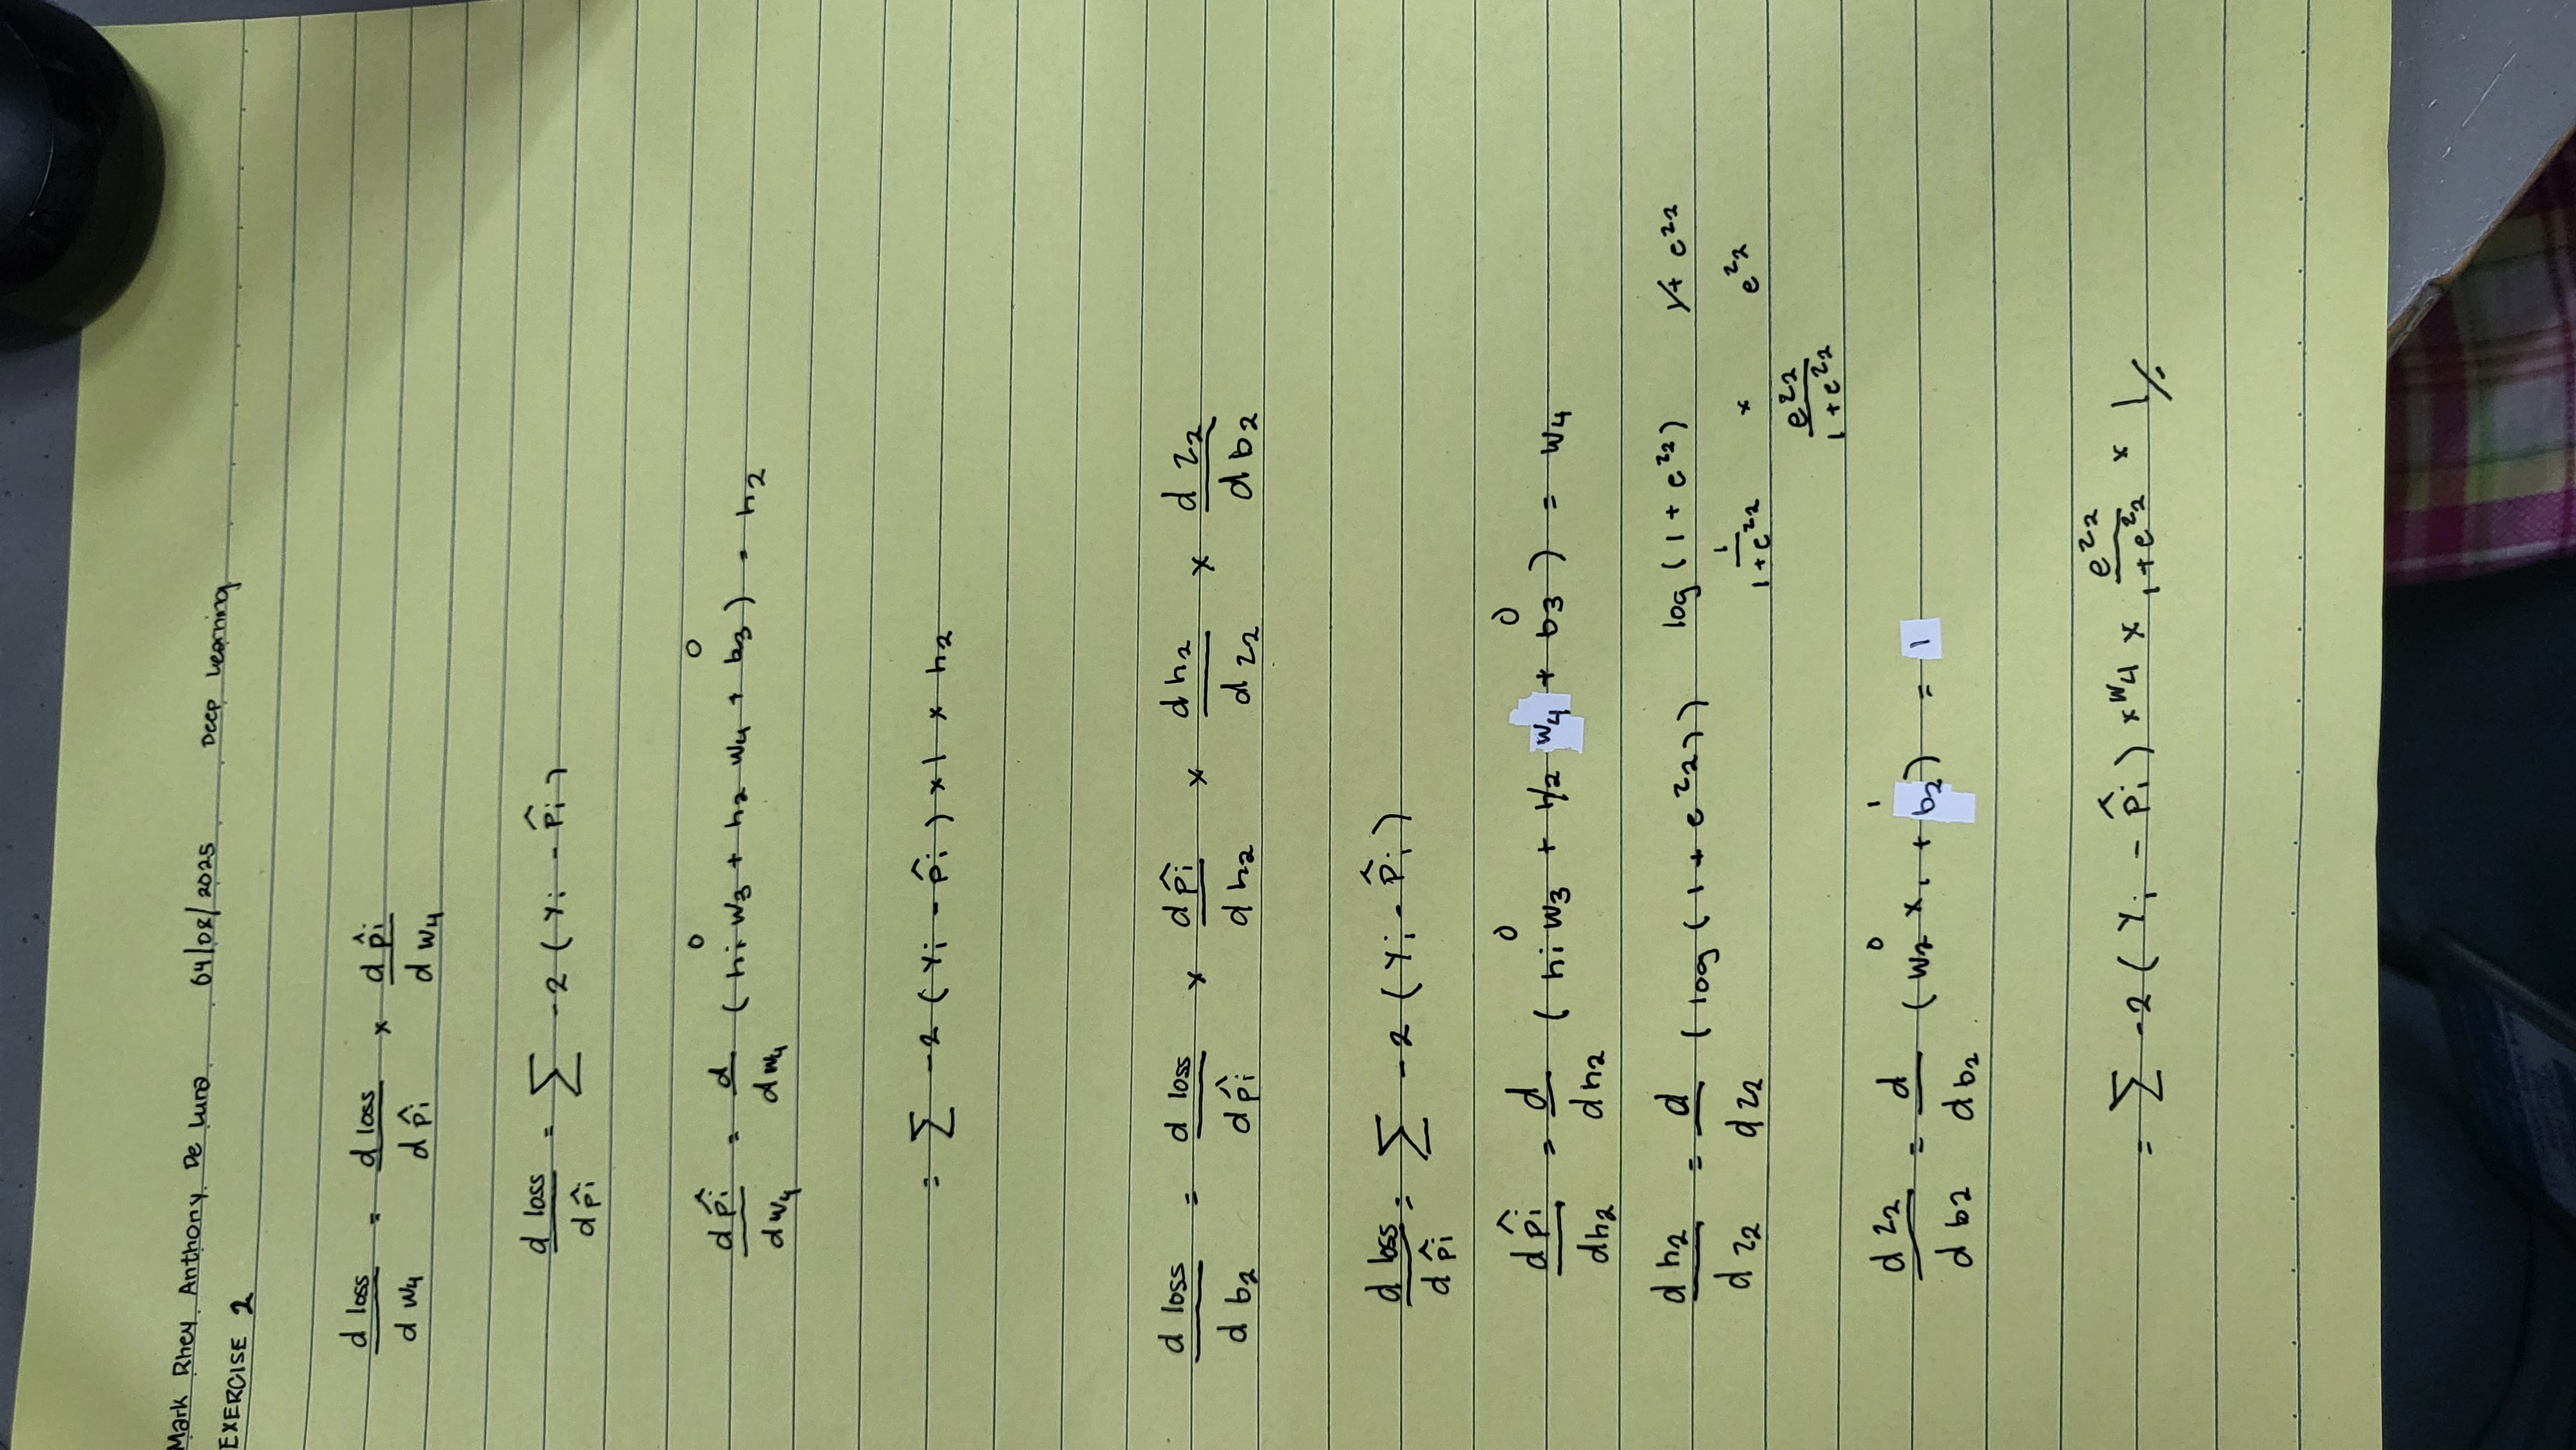 Mark Rhey Anthony De Luna 04/08/2025 Deep Learning
EXERCISE 2
d loss / d w4 = d loss / d p̂i × d p̂i / d w4
d loss / d p̂i = Σ -2 ( Yi - p̂i )
0 0
d p̂i / d w4 = d / d w4 ( h1 w3 + h2 w4 + b3 ) = h2
= Σ -2 ( Yi - p̂i ) × 1 × h2
d loss / d b2 = d loss / d p̂i × d p̂i / d h2 × d h2 / d z2 × d z2 / d b2
d loss / d p̂i = Σ -2 ( Yi - p̂i )
0 0
d p̂i / dh2 = d / dh2 ( h1 w3 + h2 w4 + b3 ) = w4
d h2 / d z2 = d / d z2 ( log ( 1 + e^z2 ) ) log ( 1 + e^z2 ) 1 + e^z2
1 / 1 + e^z2 × e^z2
e^z2 / 1 + e^z2
0 1
d z2 / d b2 = d / d b2 ( w2 x1 + b2 ) = 1
= Σ -2 ( Yi - p̂i ) × w4 × e^z2 / 1 + e^z2 × 1